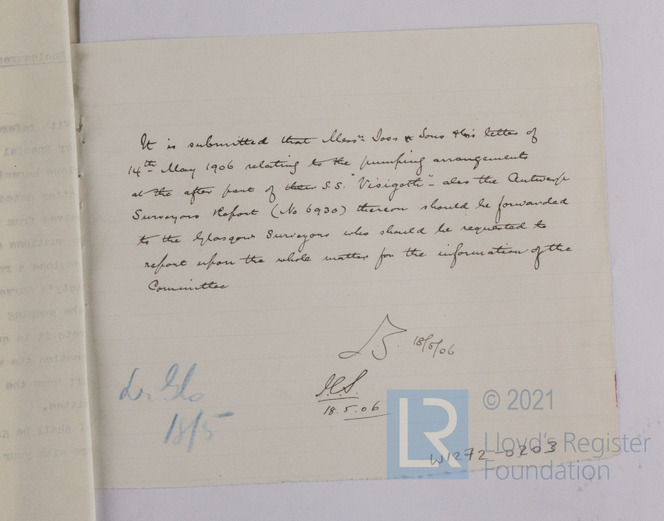 It is submitted that Messrs Doss & Sons this letter of
14th May 1906 relating to the pumping arrangements
at the after part of their S.S. "Visigoth" also the Antwerp
Surveyors Report (No 6930) thereon should be forwarded
to the Glasgow Surveyors who should be requested to
report upon the whole matter for the information of the
Committee
18/5/06
Lr Glo
18/5
18.5.06
© 2021
LR
Lloyd's Register
Foundation
W1272-0203